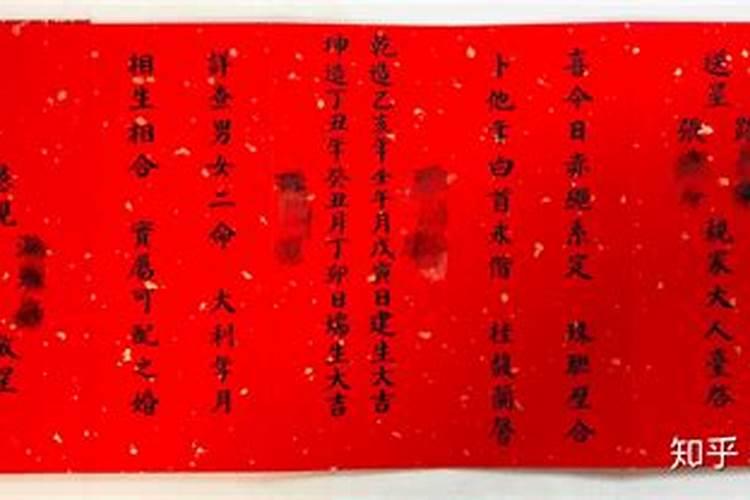 送呈
張 親家大人臺啓
喜今日赤繩系定 珠聯璧合
卜他年白首永偕 桂馥蘭馨
乾造乙亥年壬午月戊寅日建生大吉
坤造丁丑年癸丑月丁卯日瑞生大吉
詳查男女二命 大利年月
相生相合 實屬可配之婚
知乎